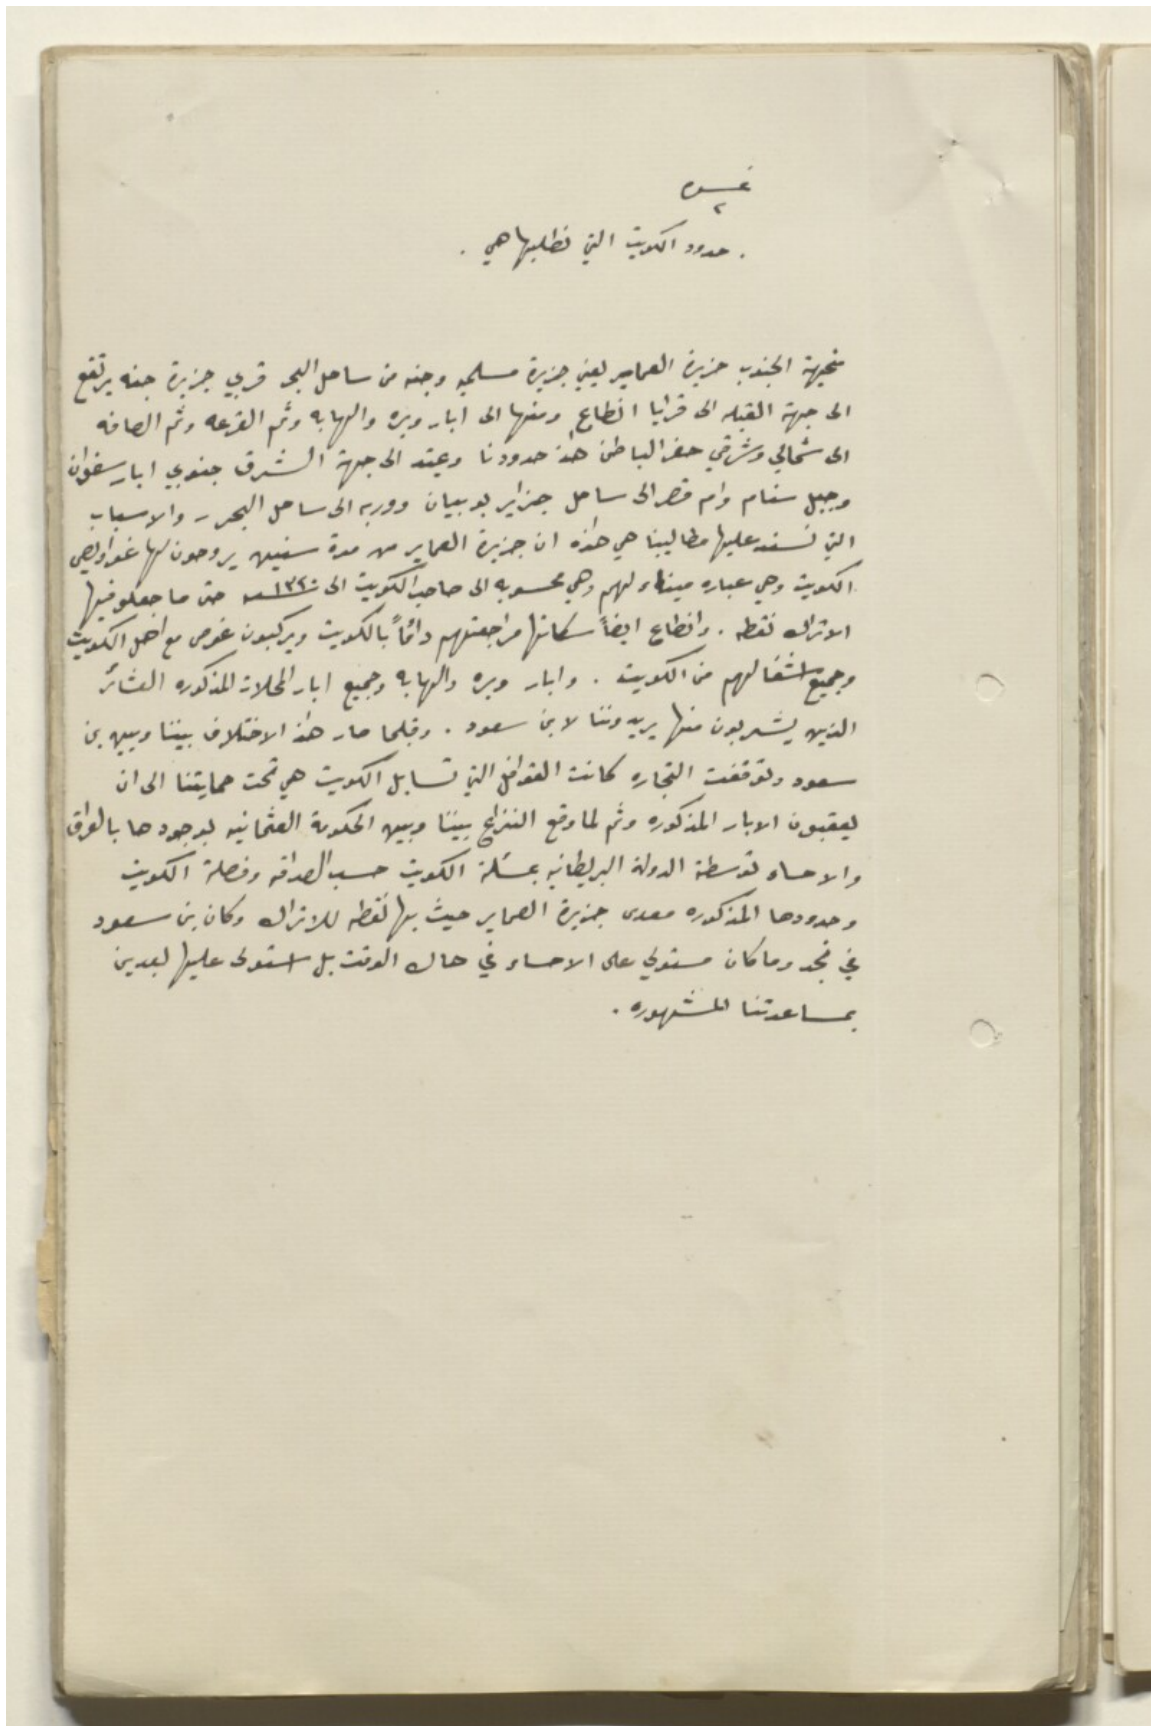 نمرة
٢
. حدود الكويت التي نطلبها هي .
منجهة الجنوب جزيرة العماير يعني جزيرة مسلميه وجنه من ساحل البحر قربي جزيرة جنه يرتفع
الى جهة القبله الى قرايا انطاع ومنها الى ابار وبره والهابه وثم القرعه وثم الصافه
الى شمالي وشرقي حفر الباطن هذه حدودنا ويمتد الى جهة الشرق جنوبي ابار سفوان
وجبل سنام وام قصر الى ساحل جزاير بوبيان ووربه الى ساحل البحر - والاسباب
التي نسند عليها مطاليبنا هي هذه ان جزيرة العماير من مدة سنين يروحون لها غواويص
الكويت وهي عباره ميناء لهم وهي محسوبه الى صاحب الكويت الى سنة ١٣٢٠ حتى ما جعلو فيها
الاتراك نقطه . وانطاع ايضاً سكانها مراجعتهم دائماً بالكويت ويركبون غوص مع اهل الكويت
وجميع اشغالهم من الكويت . وابار وبره والهابه وجميع ابار المحلات المذكوره العشائر
الذين يشربون منها يريدوننا لابن سعود . وقبلما صار هذا الاختلاف بيننا وبين بن
سعود وتوقفت التجاره كانت القوافل التي تسابل الكويت هي تحت حمايتنا الى ان
يعقبون الابار المذكوره وثم لما وقع النزاع بيننا وبين الحكومة العثمانيه بوجودها بالعراق
والاحساء توسطة الدولة البريطانيه بمسئلة الكويت حسب الصداقه وفصلة الكويت
وحدودها المذكوره معدى جزيرة العماير حيث بها نقطه للاتراك وكان بن سعود
في نجد وما كان مستولي على الاحساء في هاك الوقت بل استولى عليها بعدين
بمساعدتنا المشهوره .